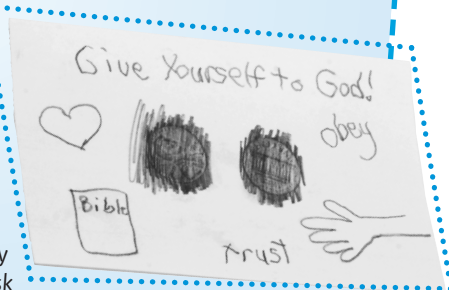 Give Yourself to God!
obey
Bible
trust
y
sk